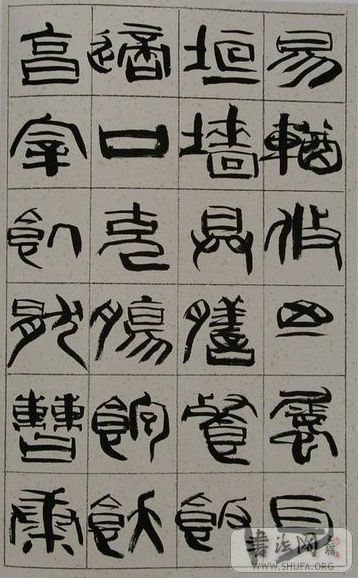 易輶攸畏屬耳
垣墻具膳餐飯
適口充腸飽飫
亯宰飢猒糟糠
書法网
WWW.SHUFA.ORG